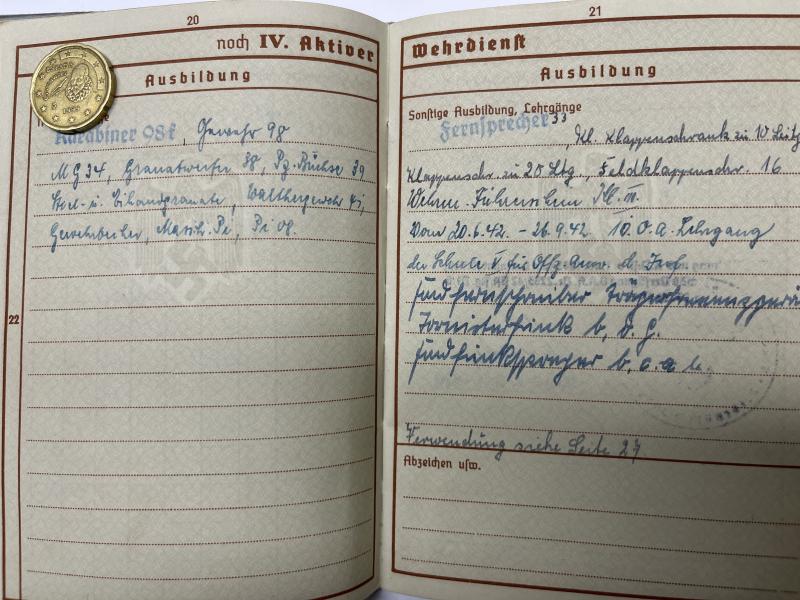 20
noch IV. Aktiver
Ausbildung
Karabiner 98k, Gewehr 98
MG 34, Granatwerfer 38, Pz. Büchse 39
Stiel- u. Eihandgranate, Walthergewehr 41,
Gewehrbecher, Masch. Pi, Pi 08.
22
21
Wehrdienst
Ausbildung
Sonstige Ausbildung, Lehrgänge
Fernsprecher 33, Kl. Klappenschrank zu 10 Leitg
Klappenschr. zu 20 Ltg., Feldklappenschr. 16
Wehrm. Führerschein Kl. III.
Vom 20.6.42. - 26.9.42. 10. O. A. Lehrgang
der Schule V für Offz. Anw. d. Inf.
Feldfernschreiber
Tornisterfunk b, d. G.
b, c. a.
Verwendung siehe Seite 27
Abzeichen usw.